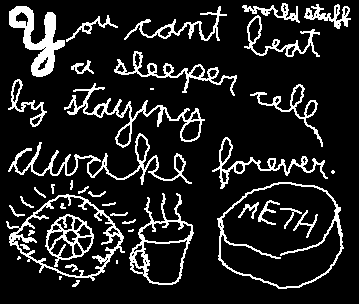 world stuff
You cant beat
a sleeper cell
by staying
awake forever.
METH